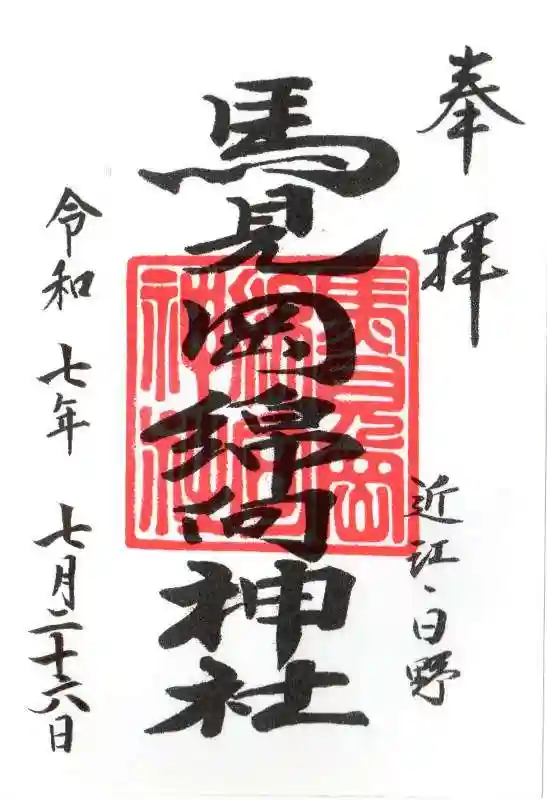 奉拝
近江・日野
馬見岡綿向神社
馬見岡
綿向
神社
令和七年七月二十六日